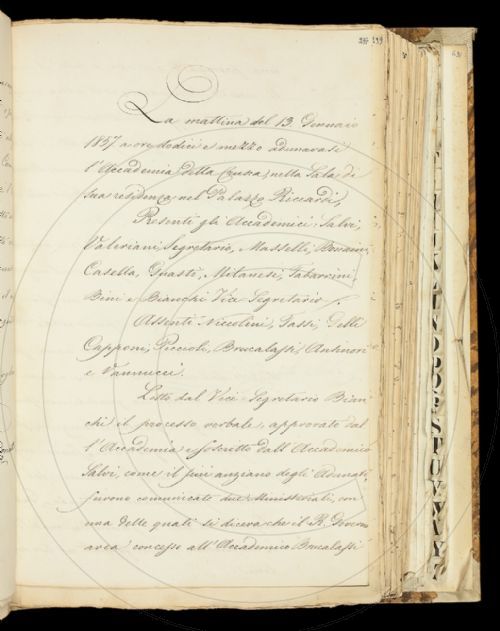 La mattina del 13. Gennaio
1857 a ore dodici e mezzo adunavasi
l'Accademia della Crusca nella Sala di
sua residenza nel Palazzo Riccardi,
Presenti gli Accademici: Salvi,
Valeriani Segretario, Masselli, Bonaini,
Casella, Guasti, Milanesi, Tabarrini,
Bini e Bianchi Vice Segretario.
Assenti Niccolini, Tassi, Della
Capponi, Puccioli, Brucalassi, Antinori
e Vannucci.
Letto dal Vice Segretario Bian
chi il processo verbale, approvato dal
l'Accademia e soscritto dall'Accademico
Salvi, come il più anziano degli Adunati,
furono comunicate due Ministeriali, con
una delle quali si diceva che il R. Governo
avea concesso all'Accademico Brucalassi